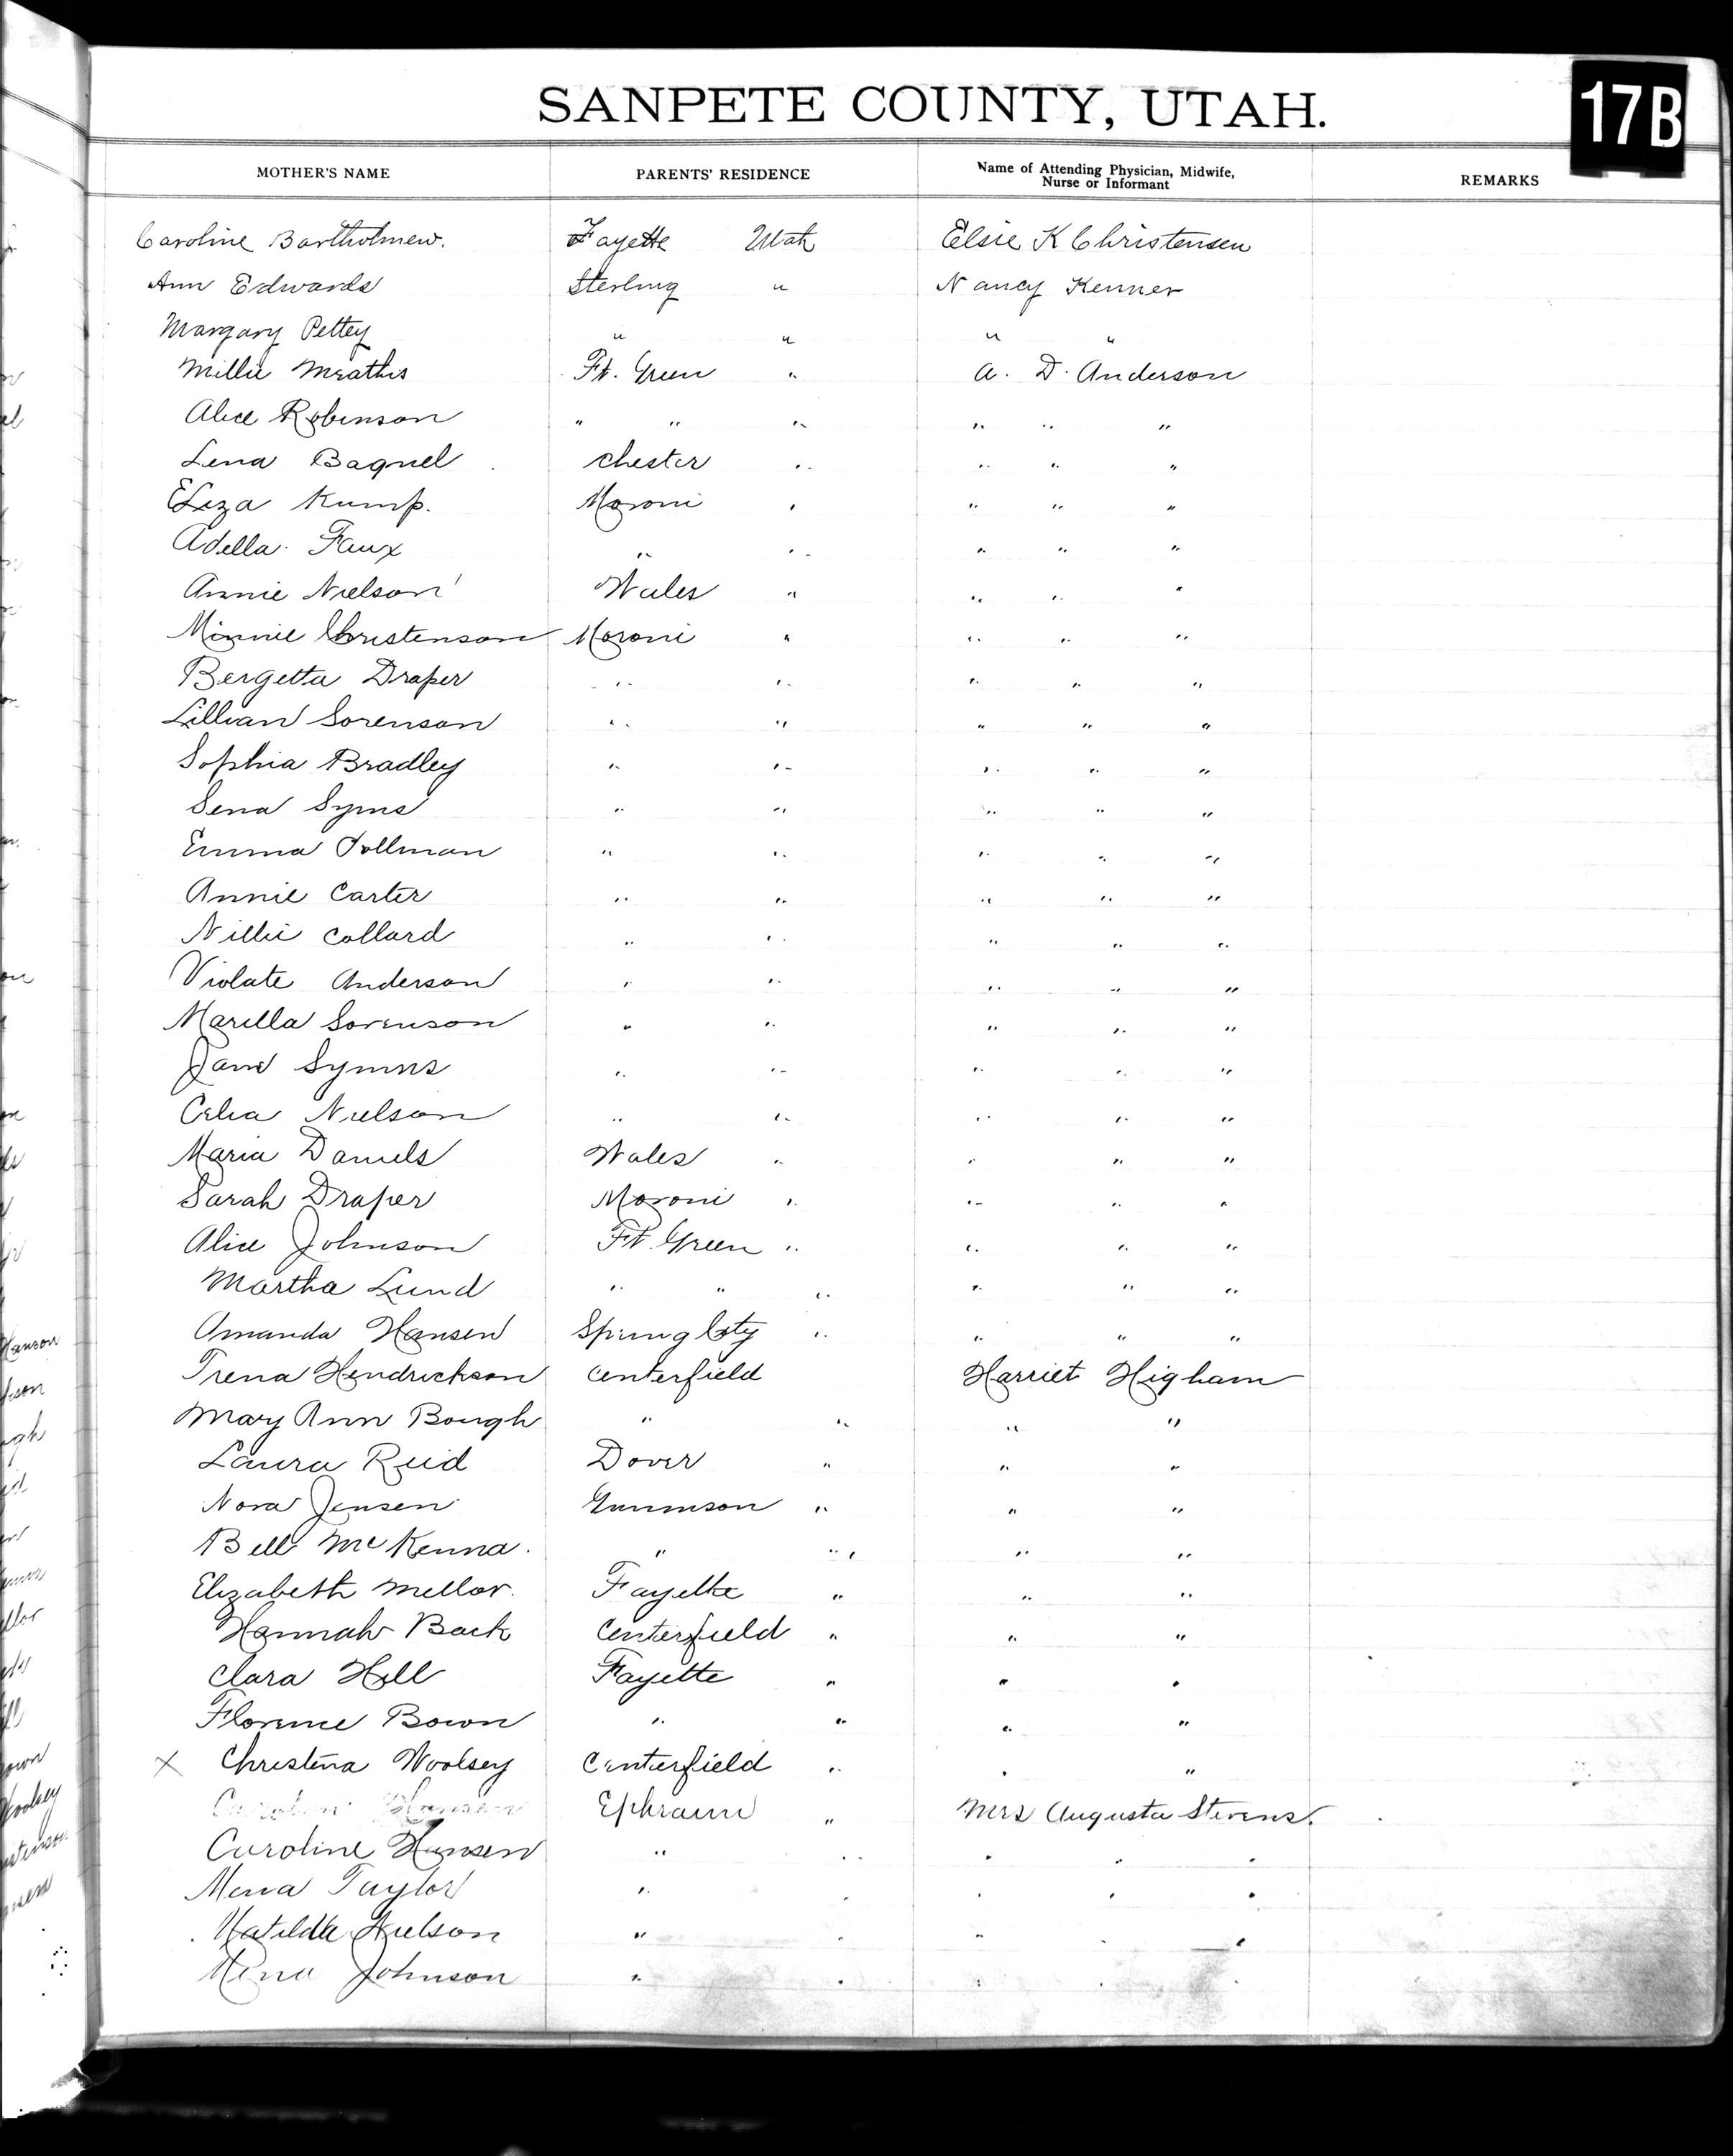 SANPETE COUNTY, UTAH.
17B
MOTHER'S NAME PARENTS' RESIDENCE Name of Attending Physician, Midwife, Nurse or Informant REMARKS
Caroline Bartholmew. Fayette Utah Elsie K Christensen
Ann Edwards Sterling " Nancy Kenner
Margary Pettey " " " "
Millie Meathis Ft. Green " A. D. Anderson
Alice Robinson " " " " " "
Lena Bagnel Chester " " " "
Eliza Kump. Moroni " " " "
Adella Faux " " " " "
Annie Nielson Wales " " " "
Minnie Christenson Moroni " " " "
Bergetta Draper " " " " "
Lillian Sorenson " " " " "
Sophia Bradley " " " " "
Sena Syme " " " " "
Emma Tollman " " " " "
Annie Carter " " " " "
Nillie Collard " " " " "
Violate Anderson " " " " "
Marilla Sorenson " " " " "
Jane Symns " " " " "
Celia Nielson " " " " "
Maria Daniels Wales " " " "
Sarah Draper Moroni " " " "
Alice Johnson Ft. Green " " " "
Martha Lund " " " " " "
Amanda Hansen Spring City " " " "
Trena Hendrickson Centerfield Harriet Higham
Mary Ann Bough " " " "
Laura Reid Dover " " "
Nora Jensen Gunnison " " "
Bell McKenna. " " " "
Elizabeth Mellor. Fayette " " "
Hannah Back Centerfield " " "
Clara Hill Fayette " " "
Florence Bown " " " "
X Christena Woolsey Centerfield " " "
Ephraim " Mrs Augusta Stevens.
Caroline Hansen " " " " "
Mena Taylor " " " " "
Matilda Nielson " " " " "
Mena Johnson " " " " "